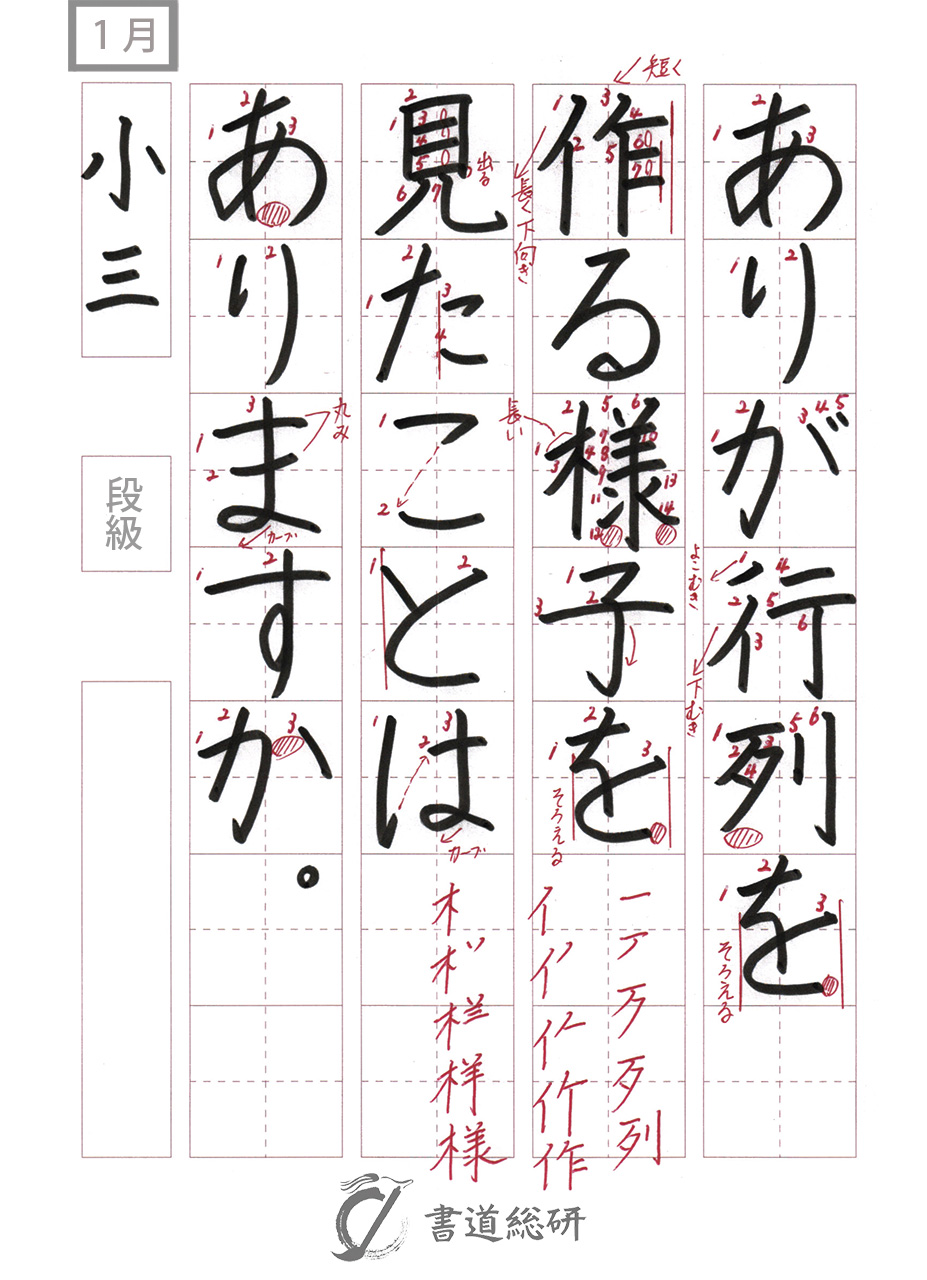 1月
ありが行列を
作る様子を
見たことは
ありますか。
小三
段級
短く
長く下向き
出る
丸み
カーブ
長い
よこむき
下むき
そろえる
そろえる
カーブ
書道総研